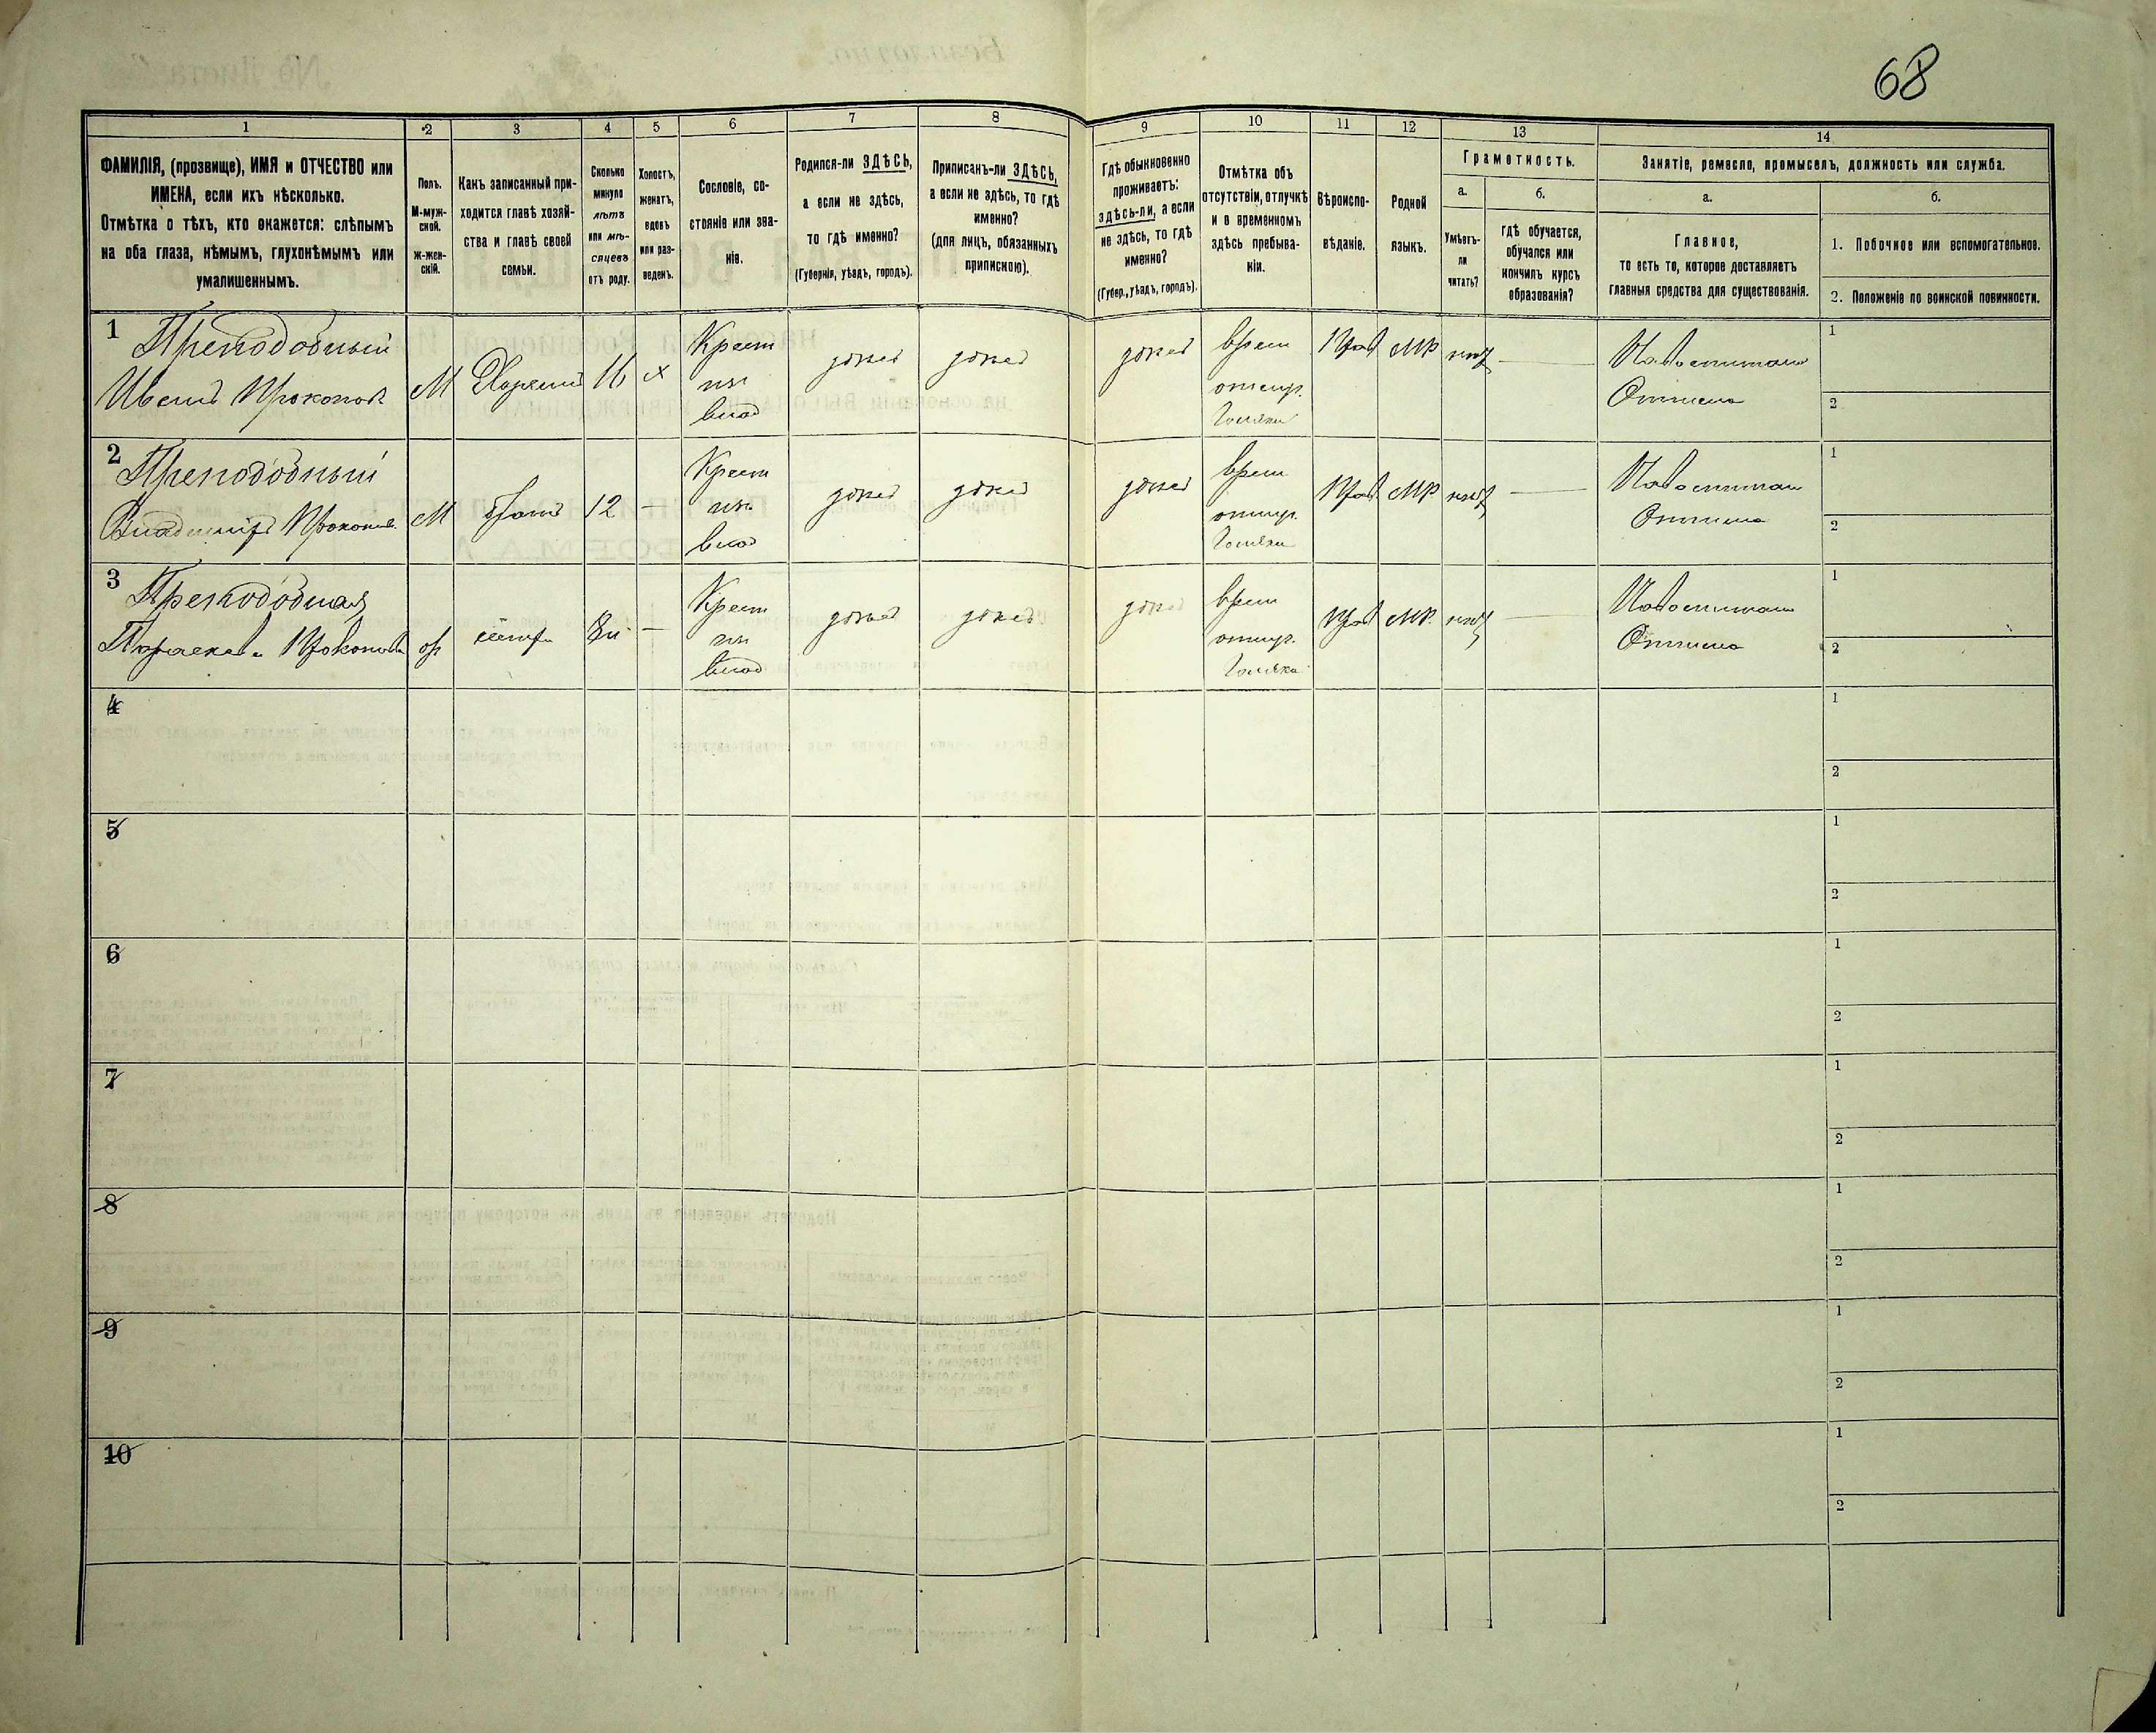 68
1
2
3
4
5
6
7
8
9
10
11
12
13
14
ФАМИЛІЯ, (прозвище), ИМЯ и ОТЧЕСТВО или
ИМЕНА, если ихъ нѣсколько.
Отмѣтка о тѣхъ, кто окажется: слѣпымъ
на оба глаза, нѣмымъ, глухонѣмымъ или
умалишеннымъ.
Полъ.
М-муж-
ской.
Ж-жен-
скій.
Какъ записанный при-
ходится главѣ хозяй-
ства и главѣ своей
семьи.
Сколько
минуло
лѣтъ
или мѣ-
сяцевъ
отъ роду.
Холостъ,
женатъ,
вдовъ
или раз-
веденъ.
Сословіе, со-
стояніе или зва-
ніе.
Родился-ли ЗДѢСЬ,
а если не здѣсь,
то гдѣ именно?
(Губернія, уѣздъ, городъ).
Приписанъ-ли ЗДѢСЬ,
а если не здѣсь, то гдѣ
именно?
(для лицъ, обязанныхъ
припискою).
Гдѣ обыкновенно
проживаетъ:
здѣсь-ли, а если
не здѣсь, то гдѣ
именно?
(Губер., уѣздъ, городъ).
Отмѣтка объ
отсутствіи, отлучкѣ
и в временномъ
здѣсь пребыва-
ніи.
Вѣроиспо-
вѣданіе.
Родной
языкъ.
Грамотность.
а.
Умѣетъ-
ли
читать?
б.
гдѣ обучается,
обучался или
кончилъ курсъ
образованія?
Занятіе, ремесло, промыселъ, должность или служба.
а.
Главное,
то есть то, которое доставляетъ
главныя средства для существованія.
б.
1. Побочное или вспомогательное.
2. Положеніе по воинской повинности.
1 Преподобный
Иванъ Прокопов
М
16
х
Крест
влад
здесь
здесь
здесь
врем
отлуч.
Прав
МР
нет
1
2
2 Преподобный
Владиміръ Прокопов.
М
братъ
12
—
Крест
влад
здесь
здесь
здесь
врем
отлуч.
Прав
МР
нет
1
2
3 Преподобная
Параскева Прокопов
ж
сестра
—
Крест
влад
здесь
здесь
здесь
врем
отлуч.
Прав
МР.
нет
1
2
4
1
2
5
1
2
6
1
2
7
1
2
8
1
2
9
1
2
10
1
2